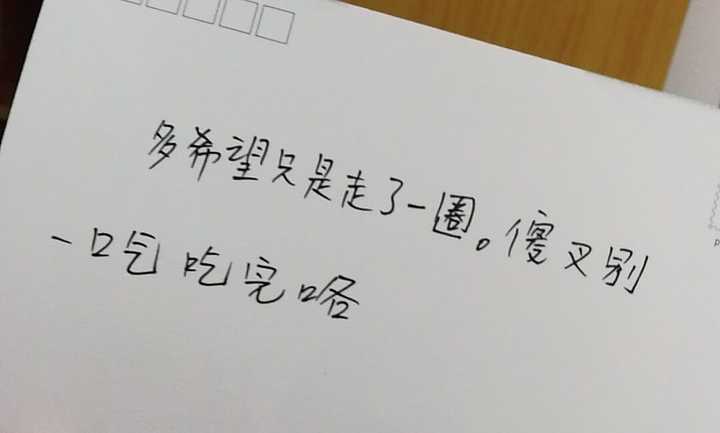 多希望只是走了一圈。傻叉别
一口气吃完咯